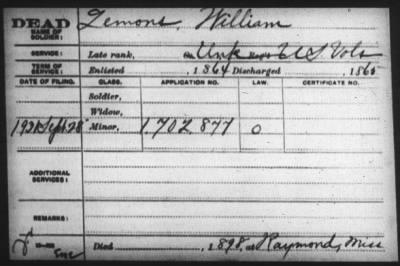 DEAD Lemons, William
NAME OF SOLDIER:
SERVICE: Late rank, Unk Reg't U S Vols
TERM OF SERVICE: Enlisted , 1864 Discharged , 1865
DATE OF FILING. CLASS. APPLICATION NO. LAW. CERTIFICATE NO.
Soldier,
Widow,
1921 Sept 28 Minor, 1.702 877 0
ADDITIONAL SERVICES:
REMARKS:
Died , 1898, at Raymond, Miss